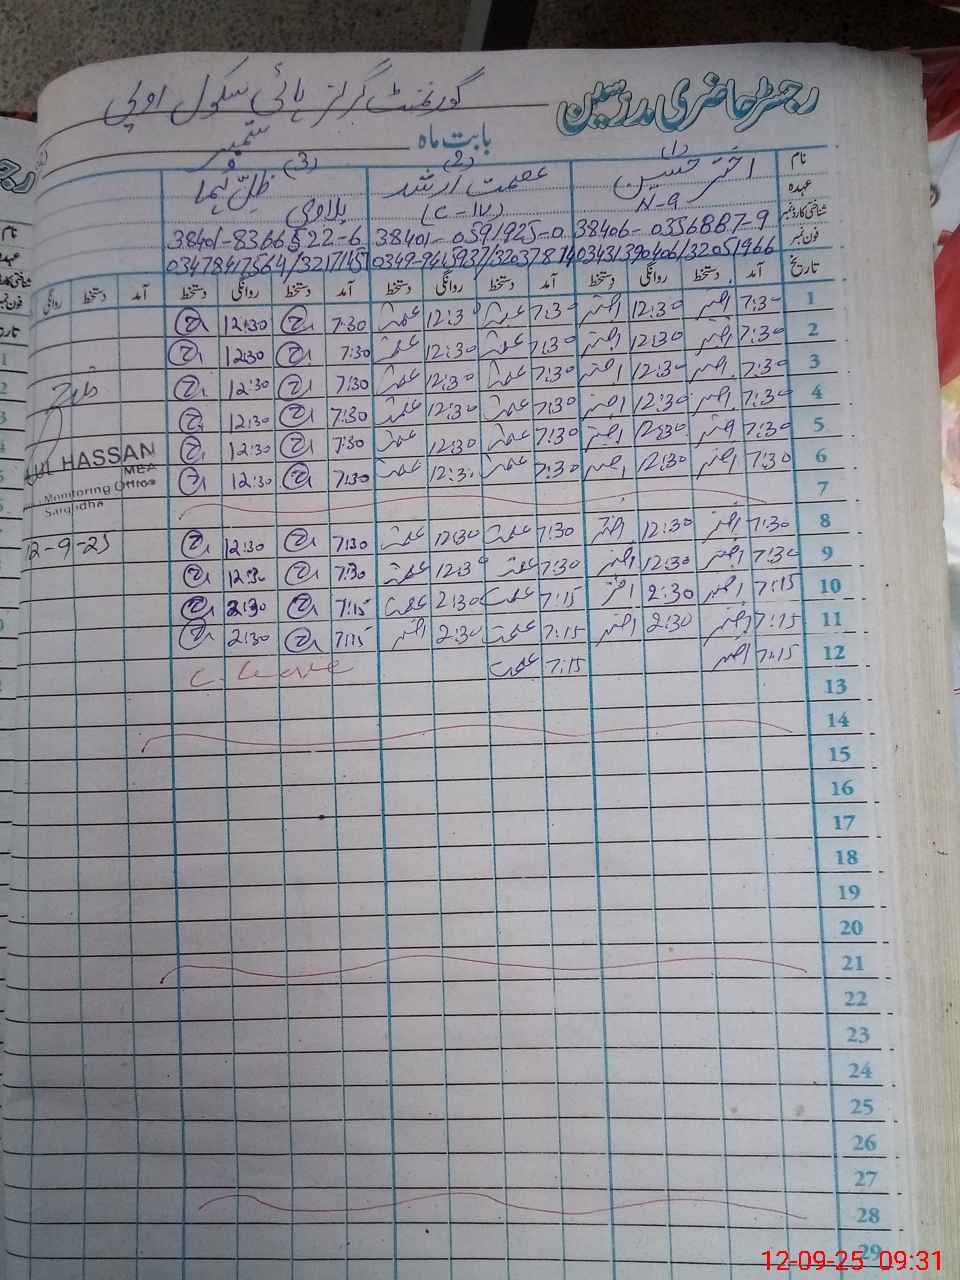 رجسٹر حاضری مدرسین گورنمنٹ گرلز ہائی سکول اوپی
بابت ماہ ستمبر
(1) (2) (3)
نام اختر حسین عصمت ارشد ظلِ ہما
عہدہ N-9 (C-IV)
شناختی کارڈ نمبر 38406-0356887-9 38401-0591925-0 38401-8366522-6
فون نمبر
تاریخ آمد دستخط روانگی دستخط آمد دستخط روانگی دستخط آمد دستخط روانگی دستخط آمد دستخط روانگی
1 7:30 اختر 12:30 اختر 7:30 عصمت 12:30 عصمت 7:30 12:30
2 7:30 اختر 12:30 اختر 7:30 عصمت 12:30 عصمت 7:30 12:30
3 7:30 اختر 12:30 اختر 7:30 عصمت 12:30 عصمت 7:30 12:30
4 7:30 اختر 12:30 اختر 7:30 عصمت 12:30 عصمت 7:30 12:30
5 7:30 اختر 12:30 اختر 7:30 عصمت 12:30 عصمت 7:30 12:30
6 7:30 اختر 12:30 اختر 7:30 عصمت 12:30 عصمت 7:30 12:30
7
8 7:30 اختر 12:30 اختر 7:30 عصمت 12:30 عصمت 7:30 12:30
9 7:30 اختر 12:30 اختر 7:30 عصمت 12:30 عصمت 7:30 12:30
10 7:15 اختر 2:30 اختر 7:15 عصمت 2:30 عصمت 7:15 2:30
11 7:15 اختر 2:30 اختر 7:15 عصمت 2:30 اختر 7:15 2:30
12 7:15 اختر 7:15 عصمت C. Leave
13
14
15
16
17
18
19
20
21
22
23
24
25
26
27
28
29
UL HASSAN
MEA
Monitoring Officer
Sargodha
12-9-25
12-09-25 09:31